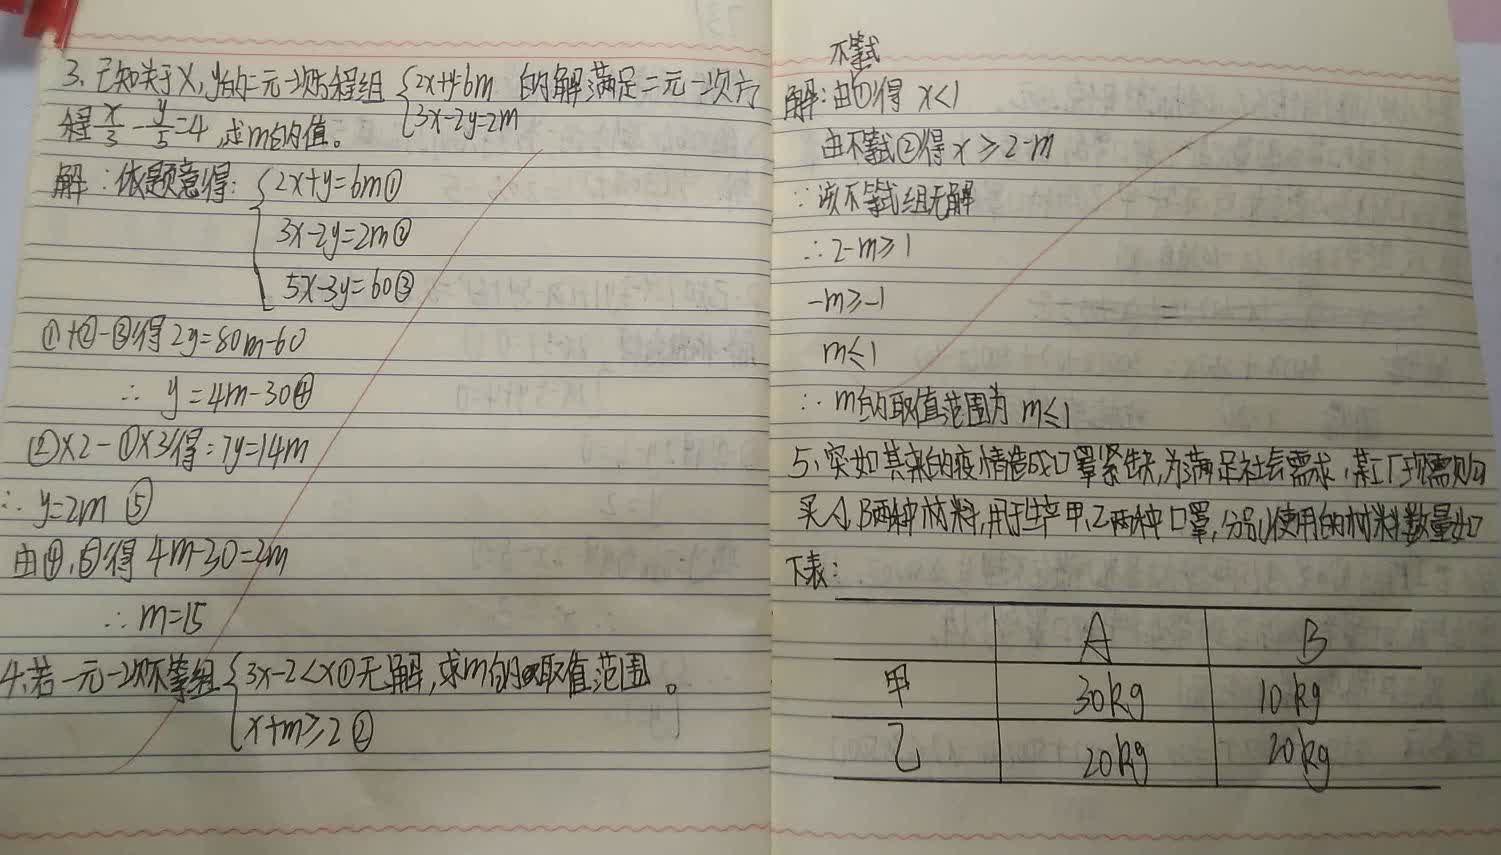 3、已知关于X,y的二元一次方程组{2x+y=6m 的解满足二元一次方
{3x-2y=2m
程x/3-y/5=4,求m的值。
解:依题意得:{2x+y=6m①
3x-2y=2m②
5x-3y=60③
①+②-③得2y=80m-60
∴ y=4m-30④
②×2-①×3得:7y=14m
∴y=2m ⑤
由④、⑤得 4m-30=2m
∴m=15
4、若一元一次不等组{3x-2<x①无解,求m的取值范围。
{x+m≥2②
不等式
解:由①得 x<1
由不等式②得x≥2-m
∵该不等式组无解
∴2-m≥1
-m≥-1
m≤1
∴m的取值范围为 m≤1
5、突如其来的疫情造成口罩紧缺,为满足社会需求,某工厂现需购
买A、B两种材料,用于生产甲、乙两种口罩,分别使用的材料数量如
下表:
A B
甲 30kg 10kg
乙 20kg 20kg